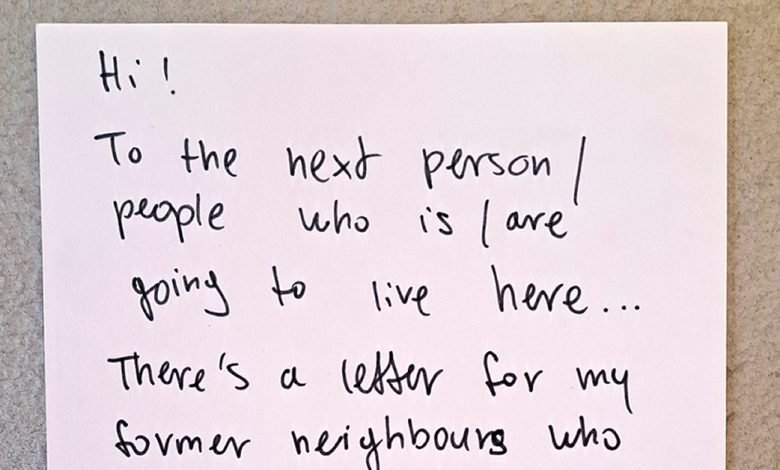 Hi!
To the next person/
people who is/are
going to live here...
There's a letter for my
former neighbours who